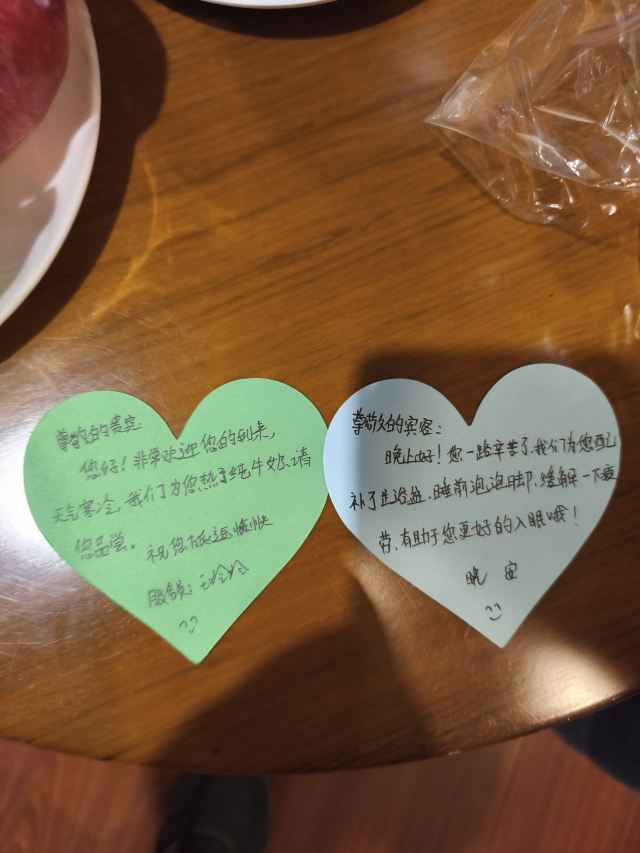 尊敬的贵宾:
您好！非常欢迎您的到来,
天气寒冷,我们为您热了纯牛奶、请
您品尝。
祝您旅途愉快
服务员:
尊敬的宾客:
晚上好！您一路辛苦了,我们为您配
补了足浴盐,睡前泡泡脚,缓解一下疲
劳,有助于您更好的入眠哦！
晚 安